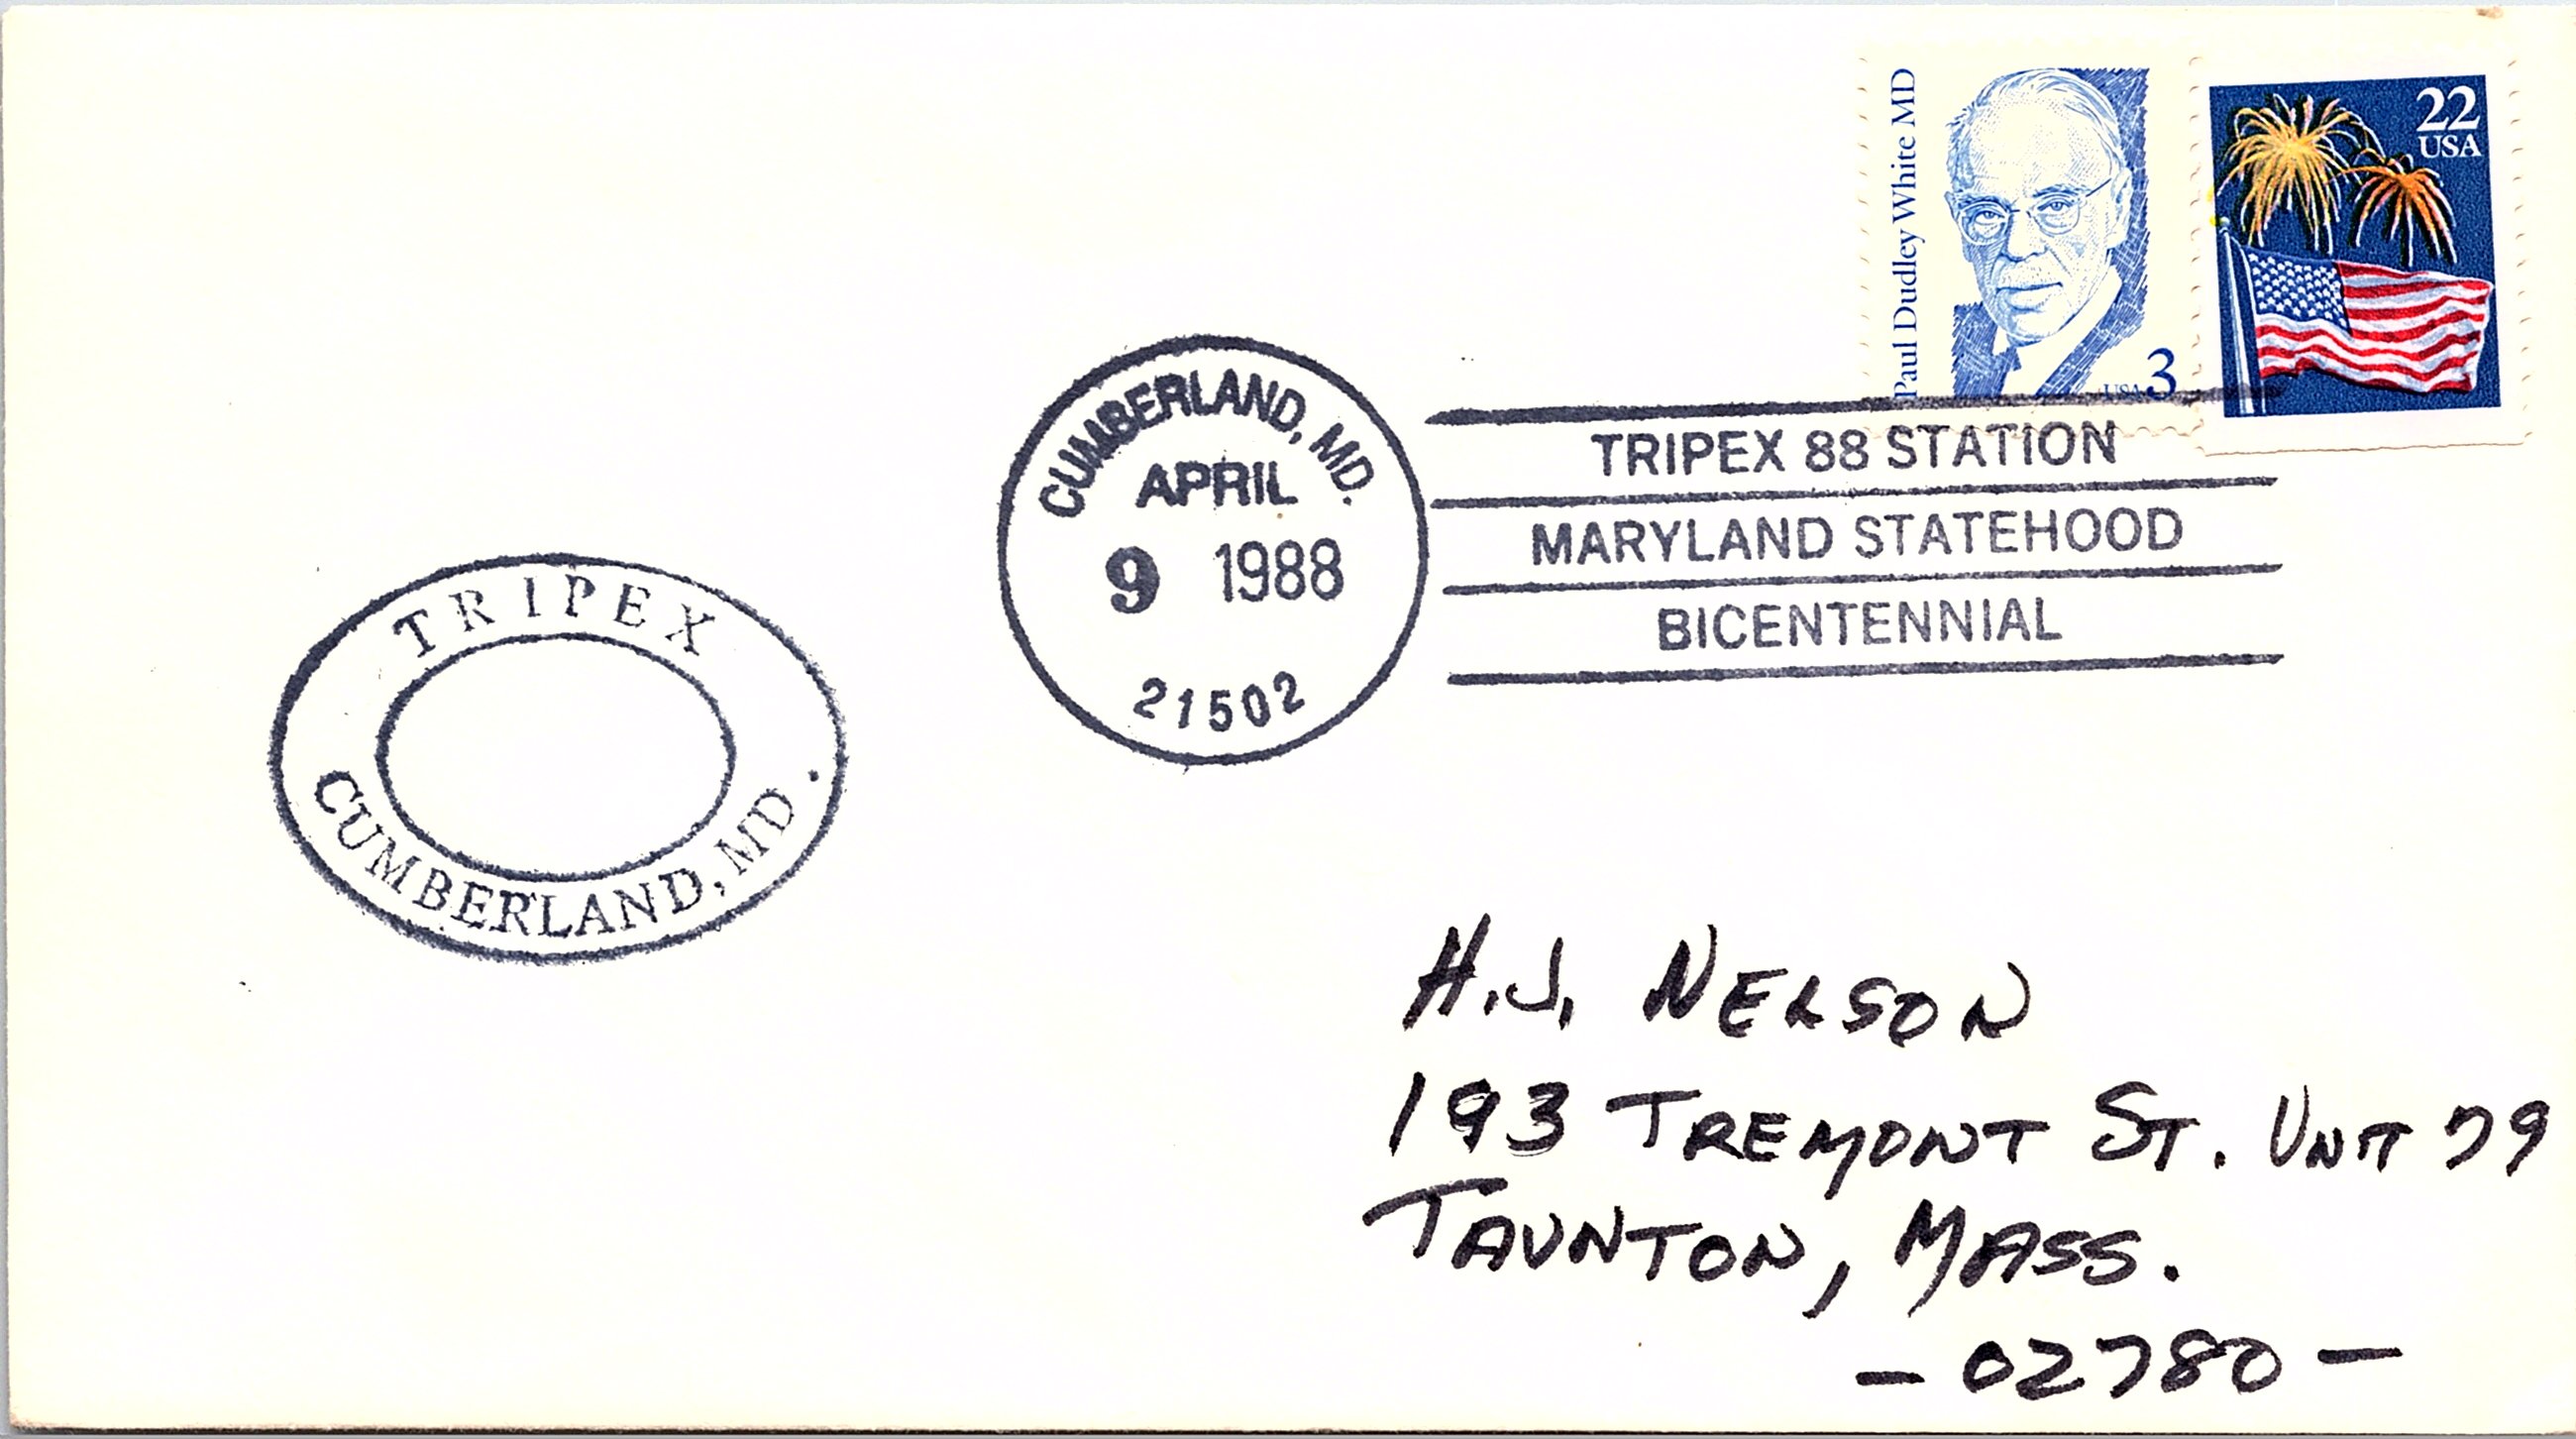 Paul Dudley White MD
USA 3
22
USA
CUMBERLAND, MD.
APRIL
9 1988
21502
TRIPEX 88 STATION
MARYLAND STATEHOOD
BICENTENNIAL
TRIPEX
CUMBERLAND, MD.
H.J. NELSON
193 TREMONT ST. UNIT 79
TAUNTON, MASS.
- 02780 -